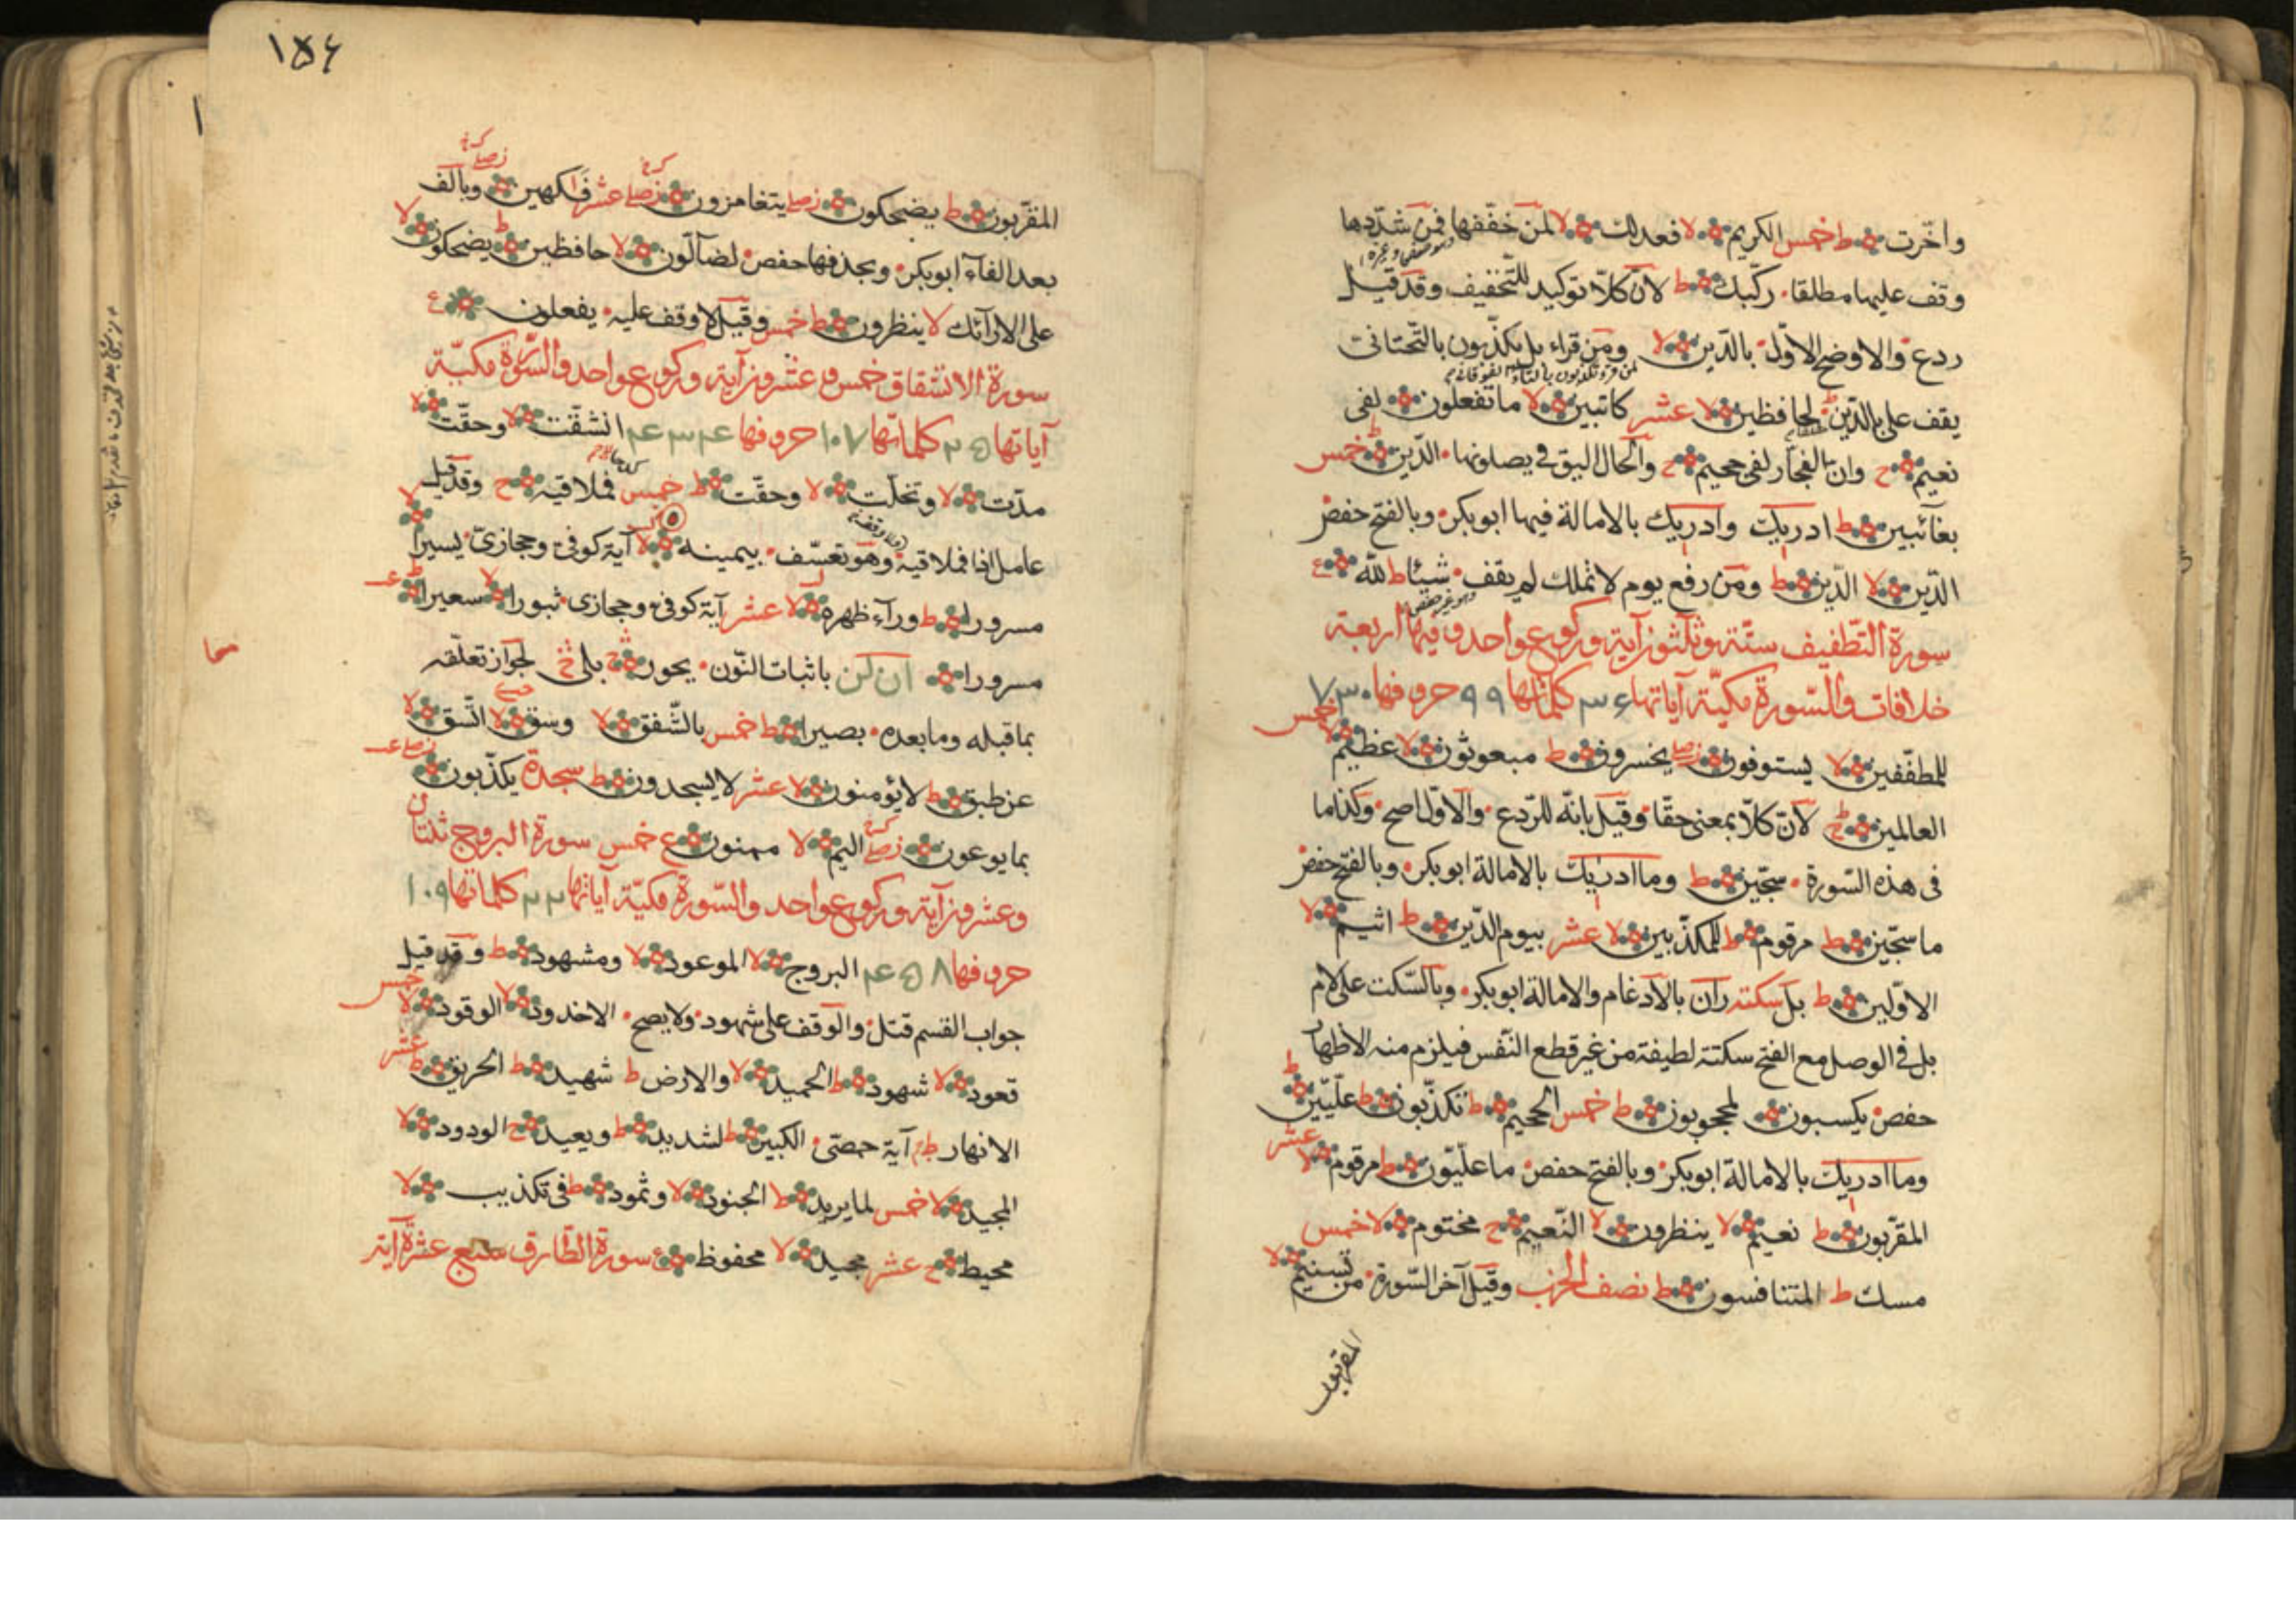 واخّرت ط خمس الكريم لا فعدلك لا لمن خفّفها فمن شدّدها
وقف عليها مطلقا ركّبك ط لانّ كلّا توكيد للتّخفيف وقد قيل
ردع والاوضح الاوّل بالدّين لا ومن قراء بل يكذّبون بالتّحتانى
يقف على بالدّين ط لحافظين لا عشر كاتبين لا ما تفعلون لفى
نعيم ح وانّ الفجّار لفى جحيم ح والحال اليق فى يصلونها الدّين ط خمس
بغآئبين ط ادريك وادريك بالامالة فيها ابوبكر وبالفتح حفص
الدّين لا الدّين ط ومن رفع يوم لا تملك لم يقف شيئا ط لله ع
سورة التّطفيف ستّة وثلثون آية وركوع واحد وفيها اربعة
خلافات والسّورة مكيّة آياتها ۳۶ كلماتها ۹۹ حروفها ۷۳۰
للمطفّفين لا يستوفون زصلى يخسرون ط مبعوثون لا عظيم لا خمس
العالمين ط لانّ كلّا بمعنى حقّا وقيل بانّه للرّدع والاوّل اصح وكذا ما
فى هذه السّورة سجّين ط وما ادريك بالامالة ابوبكر وبالفتح حفص
ما سجّين ط مرقوم ط للمكذّبين لا عشر بيوم الدّين ط اثيم لا
الاوّلين ط بل سكته ران بالادغام والامالة ابوبكر وبالسّكت على لام
بل فى الوصل مع الفتح سكتة لطيفة من غير قطع النّفس فيلزم منه الاظهار
حفص يكسبون لمحجوبون ط خمس الجحيم ط تكذّبون ط علّيّين ط
وما ادريك بالامالة ابوبكر وبالفتح حفص ما علّيّون ط مرقوم لا عشر
المقرّبون ط نعيم لا ينظرون لا النّعيم ح مختوم لا خمس
مسك ط المتنافسون ط نصف الحزب وقيل آخر السّورة من تسنيم لا
المقربون
۱۵۶
المقرّبون ط يضحكون زصلى يتغامزون زصلى عشر فاكهين وبالف
بعد الفآء ابوبكر وبحذفها حفص لضآلّون لا حافظين ط يضحكون لا
على الارآئك لا ينظرون ط خمس وقيل لا وقف عليه يفعلون ع
سورة الانشقاق خمس وعشرون آية وركوع واحد والسّورة مكيّة
آياتها ۲۵ كلماتها ۱۰۷ حروفها ۴۳۴ انشقّت لا وحقّت لا
مدّت لا وتخلّت لا وحقّت ط خمس فملاقيه ح وقد قيل
عامل اذا فملاقيه وهو تعسّف بيمينه لا آية كوفى وحجازىّ يسيرا لا
مسرورا ط ورآء ظهره لا عشر آية كوفى وحجازى ثبورا لا سعيرا ط
مسرورا ان لن باثبات النّون يحور بلى لجواز تعلّقه
بما قبله وما بعده بصيرا ط خمس بالشّفق لا وسق لا اتّسق لا
عن طبق ط لا يؤمنون لا عشر لا يسجدون ط سجدة يكذّبون
بما يوعون زصلى اليم لا ممنون ع خمس سورة البروج ثنتان
وعشرون آية وركوع واحد والسّورة مكيّة آياتها ۲۲ كلماتها ۱۰۹
حروفها ۴۵۸ البروج لا الموعود لا ومشهود ط وقد قيل
جواب القسم قتل والوقف على شهود ولا يصح الاخدود لا الوقود لا خمس
قعود لا شهود ط الحميد لا والارض ط شهيد ط الحريق ط عشر
الانهار ط آية حمصّى الكبير ط لشديد ط ويعيد ح الودود لا
المجيد لا خمس لما يريد ط الجنود لا وثمود ط فى تكذيب لا
محيط ح عشر مجيد لا محفوظ ع سورة الطّارق سبع عشرة آية